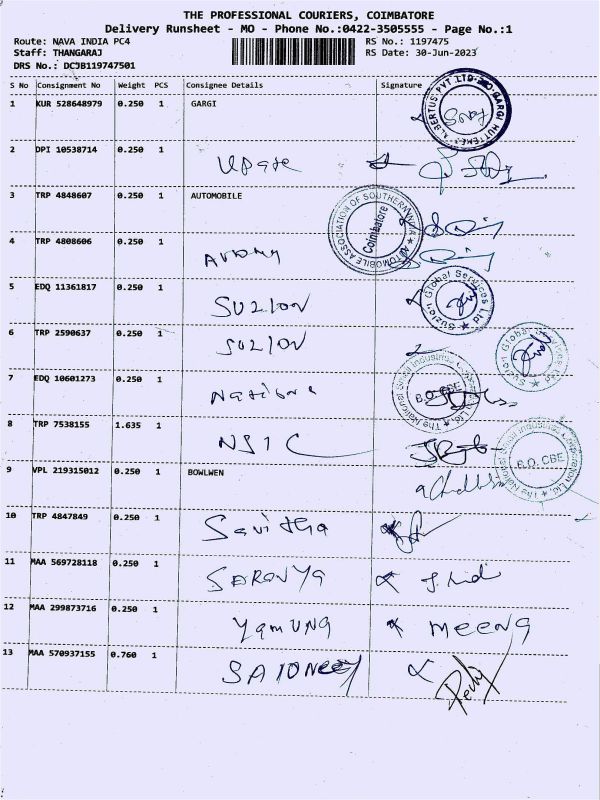 THE PROFESSIONAL COURIERS, COIMBATORE
Delivery Runsheet - MO - Phone No.:0422-3505555 - Page No.:1
Route: NAVA INDIA PC4 RS No.: 1197475
Staff: THANGARAJ RS Date: 30-Jun-2023
DRS No.: DCJB119747501
S No Consignment No Weight PCS Consignee Details Signature
1 KUR 528648979 0.250 1 GARGI
2 DPI 10538714 0.250 1
3 TRP 4848607 0.250 1 AUTOMOBILE
AUTOMOBILE ASSOCIATION OF SOUTHERN INDIA
Coimbatore
4 TRP 4808606 0.250 1
5 EDQ 11361817 0.250 1 SUZLON
Suzlon Global Services Ltd
6 TRP 2590637 0.250 1 SUZLON
Suzlon Global
7 EDQ 10601273 0.250 1
The National Small Industries Corporation Ltd
B.O. CBE
8 TRP 7538155 1.635 1 NSIC
The National Small Industries Corporation Ltd
B.O. CBE
9 VPL 219315012 0.250 1 BOWLWEN
10 TRP 4847849 0.250 1 Savitha
11 MAA 569728118 0.250 1 SARONYA
12 MAA 299873716 0.250 1 YAMUNA MEENA
13 MAA 570937155 0.760 1